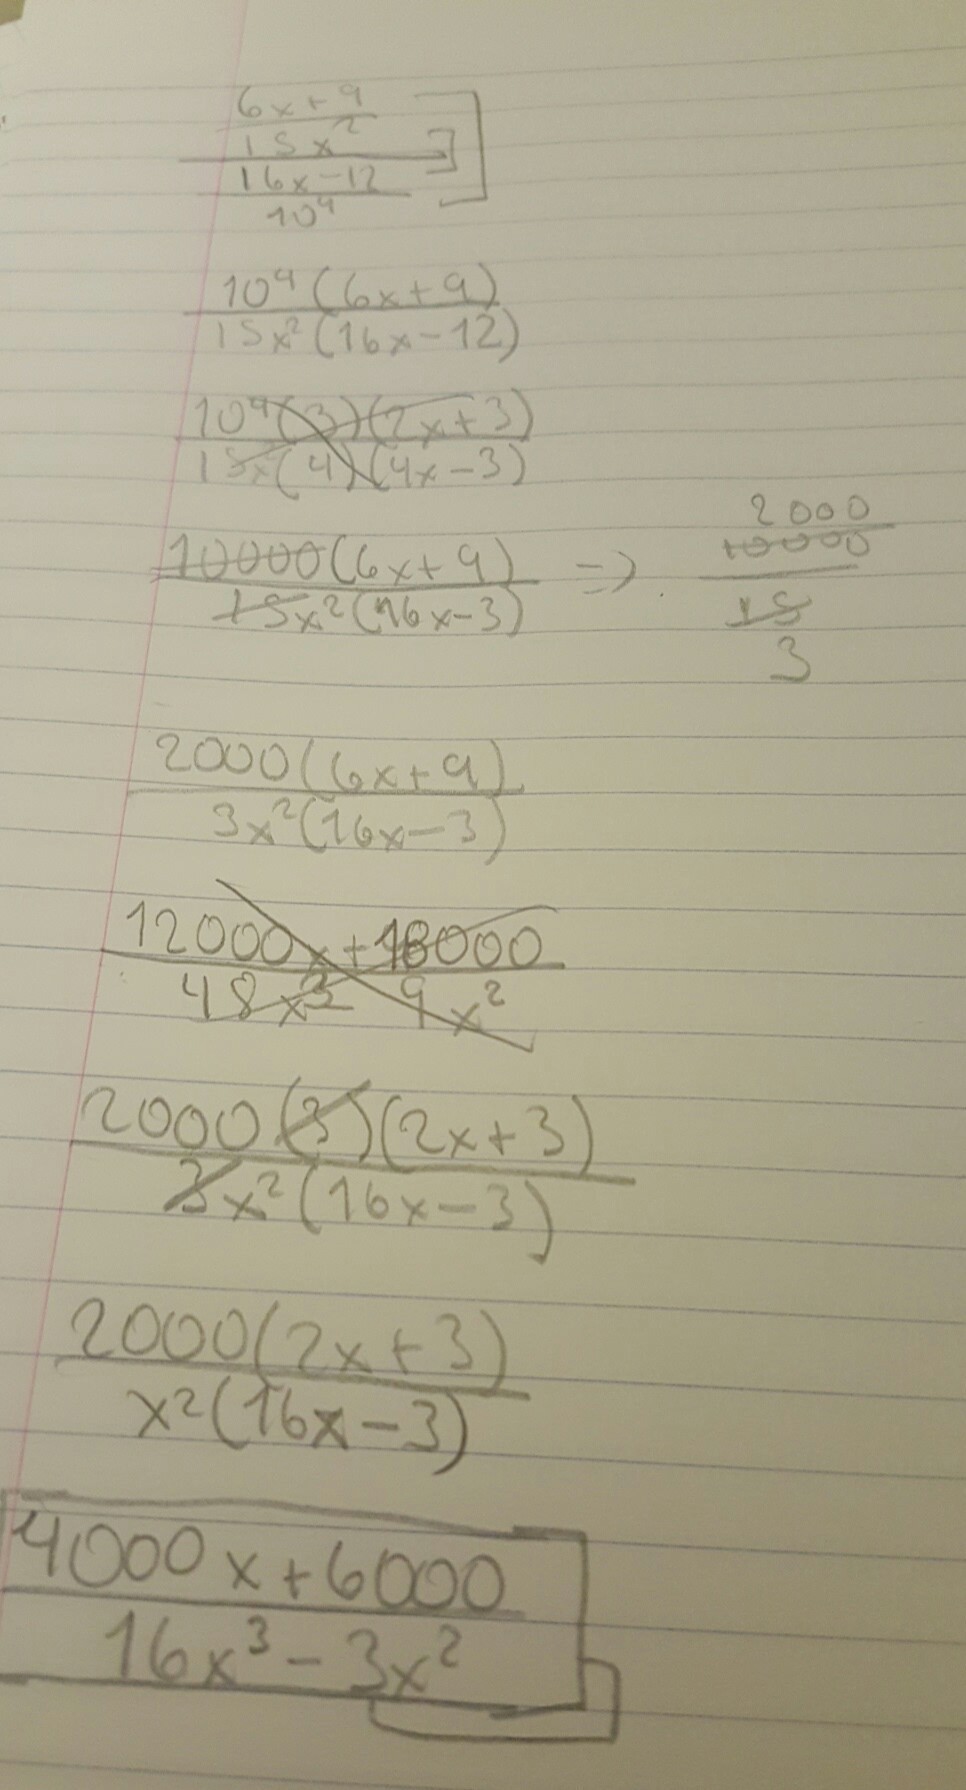 6x+9
15x²
16x-12
10⁴
10⁴(6x+9)
15x²(16x-12)
10⁴(3)(2x+3)
15x²(4)(4x-3)
10000(6x+9) =>
15x²(16x-3)
2000
10000
15
3
2000(6x+9)
3x²(16x-3)
12000x+18000
48x³ 9x²
2000(3)(2x+3)
3x²(16x-3)
2000(2x+3)
x²(16x-3)
4000x+6000
16x³-3x²